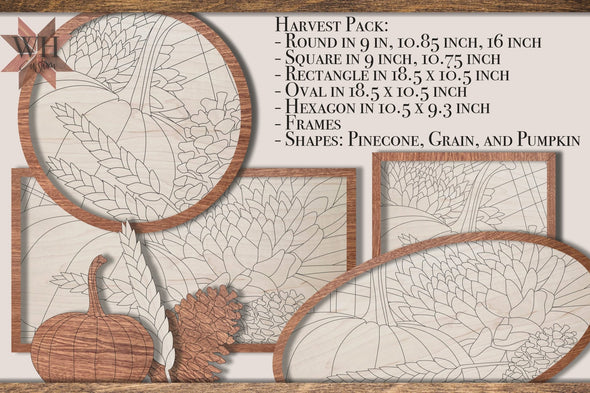 WH
Harvest Pack:
- Round in 9 in, 10.85 inch, 16 inch
- Square in 9 inch, 10.75 inch
- Rectangle in 18.5 x 10.5 inch
- Oval in 18.5 x 10.5 inch
- Hexagon in 10.5 x 9.3 inch
- Frames
- Shapes: Pinecone, Grain, and Pumpkin